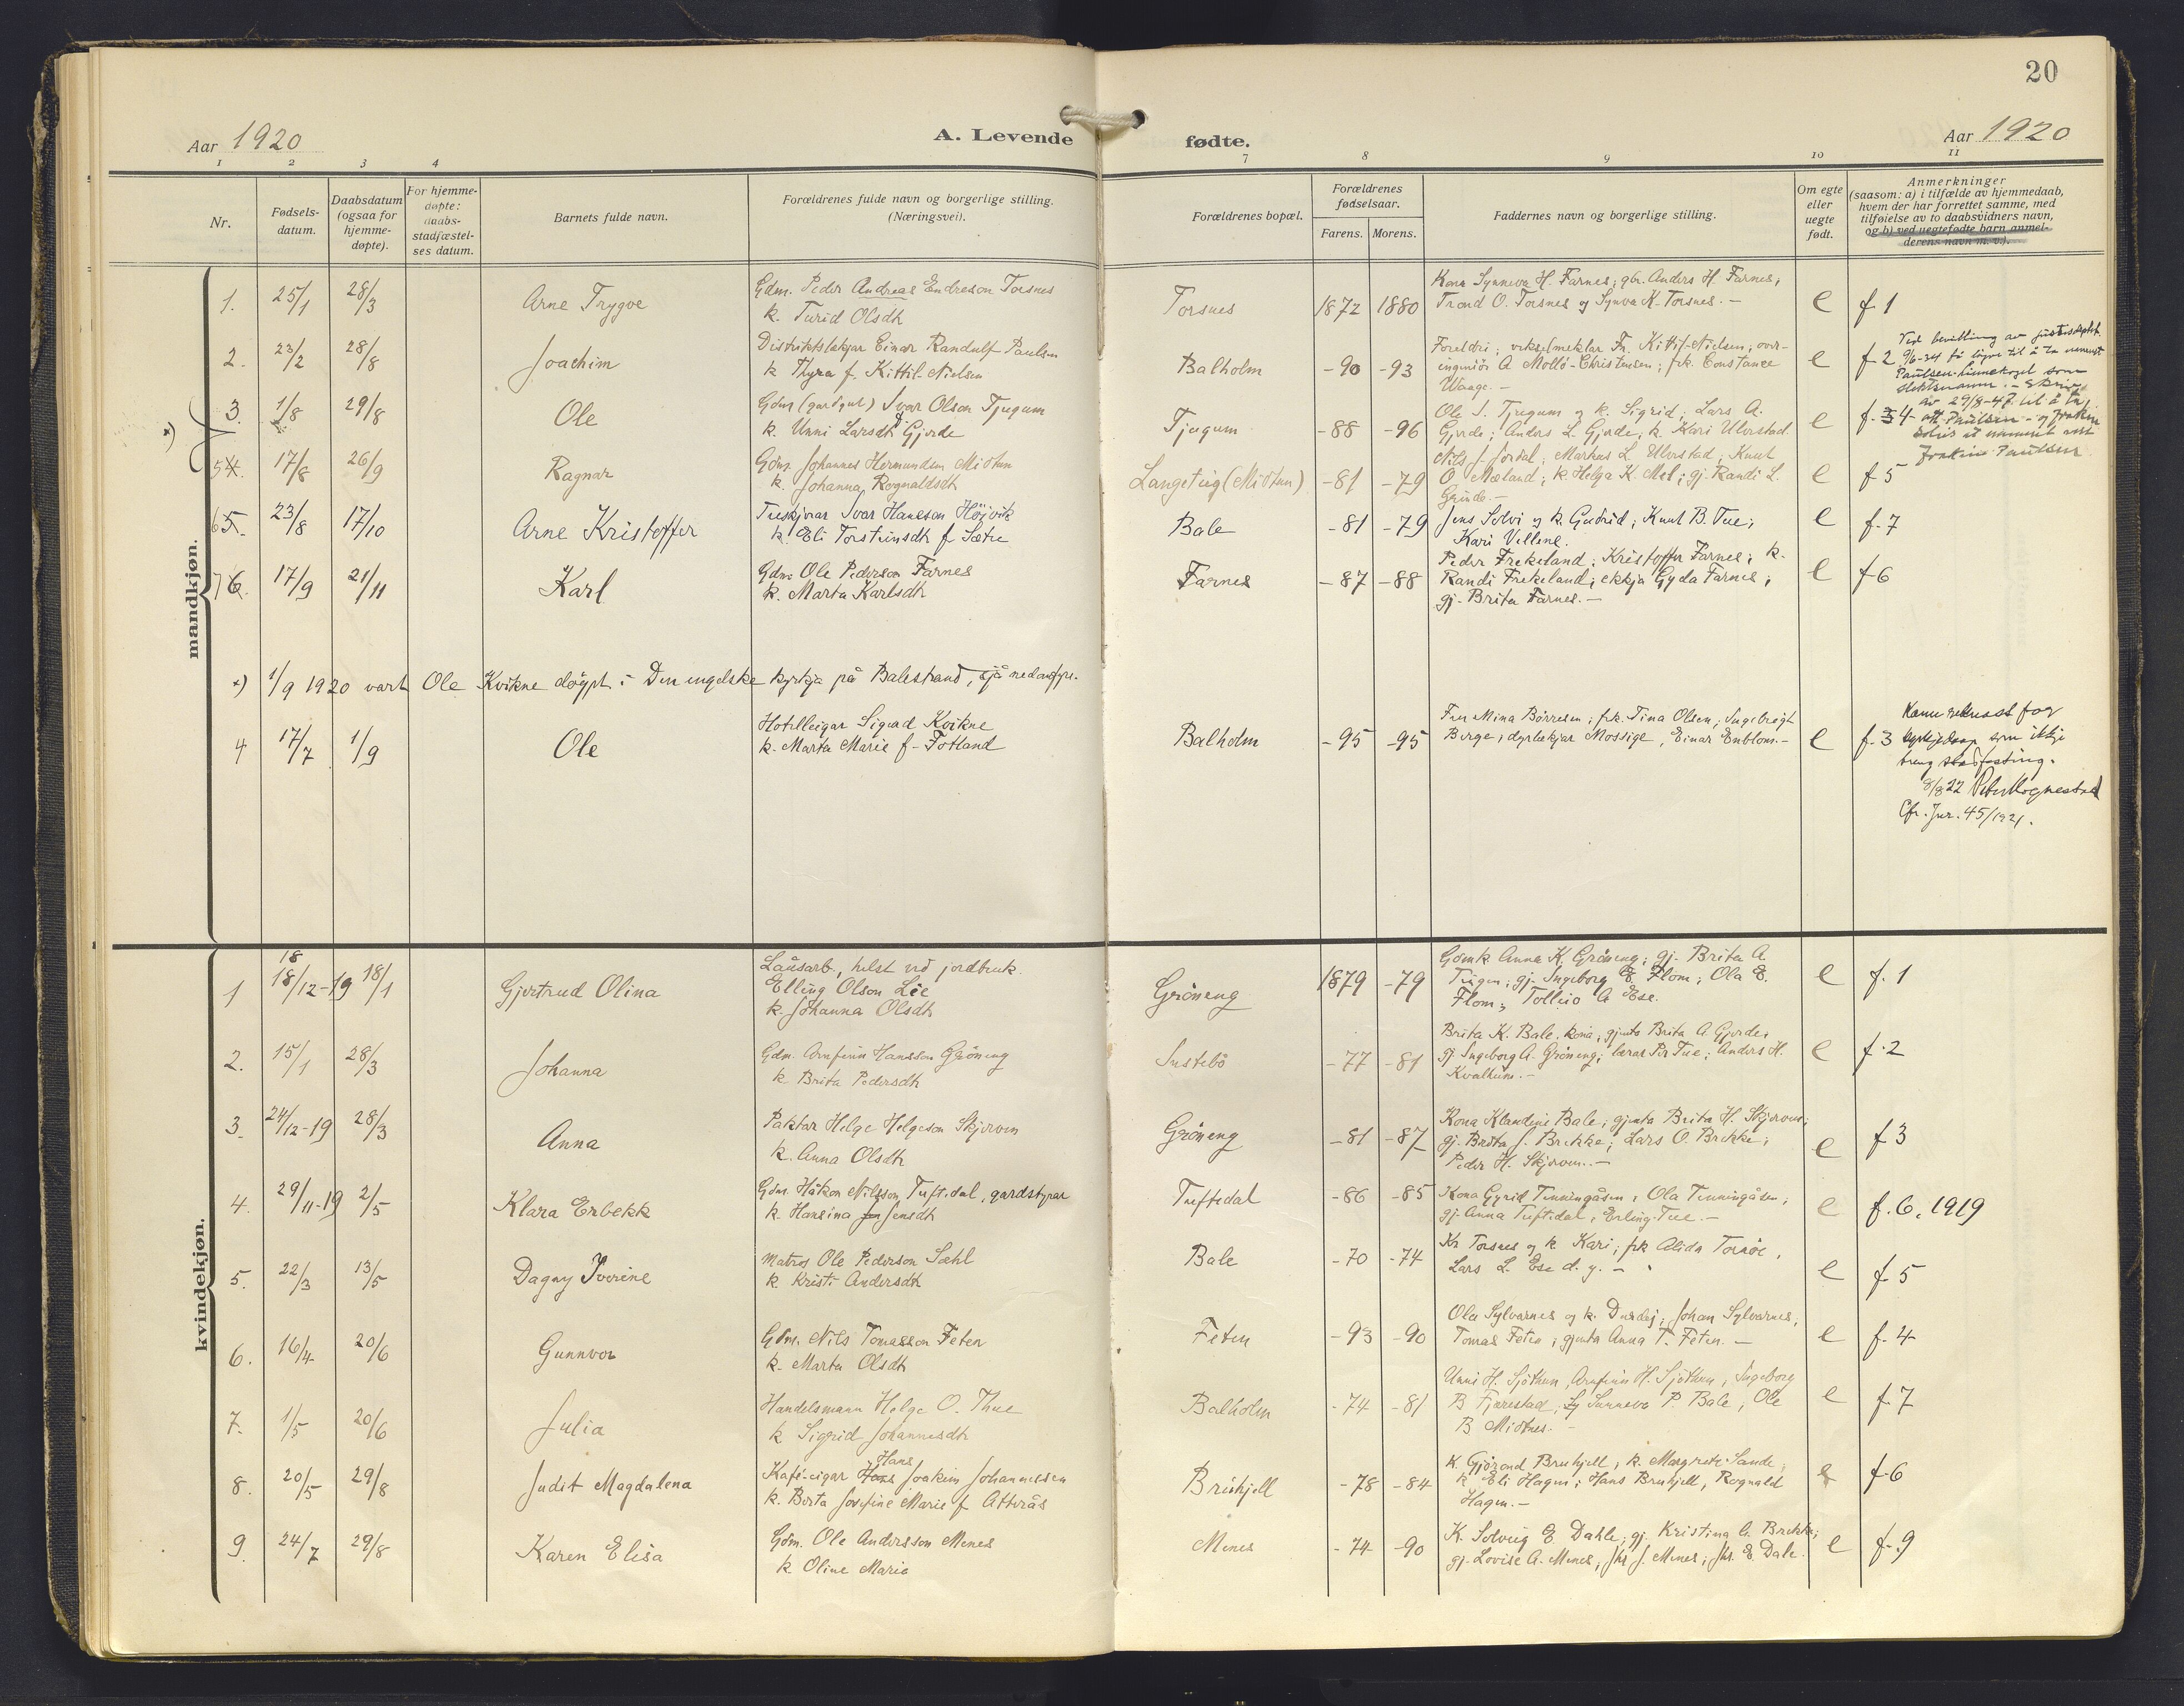 20
Aar 1920
A. Levende
fødte.
Aar 1920
1 2 3 4 7 8 9 10 11
Nr.
Fødsels-
datum.
Daabsdatum
(ogsaa for
hjemme-
døpte).
For hjemme-
døpte:
daabs-
stadfæstel-
ses datum.
Barnets fulde navn.
Forældrenes fulde navn og borgerlige stilling.
(Næringsvei).
Forældrenes bopæl.
Forældrenes
fødselsaar.
Farens. Morens.
Faddernes navn og borgerlige stilling.
Om egte
eller
uegte
født.
Anmerkninger
(saasom: a) i tilfælde av hjemmedaab,
hvem der har forrettet samme, med
tilføielse av to daabsvidners navn,
og b) ved uegtefødte barn anmel-
derens navn m. v.).
mandkjøn.
1. 25/1 28/3 Arne Trygve
Gdm. Peder Andreas Endreson Torsnes
k. Turid Olsdtr
Torsnes 1872 1880
Kona Synneva H. Farnes; gbr. Anders H. Farnes;
Trond O. Torsnes og Synva K. Torsnes. —
e f 1
2. 23/2 28/8 Joachim
Distriktslækjar Einar Randulf Paulsen
k Thyra f. Kittil-Nielsen
Balholm -90 -93
Foreldri; vekselmeklar Fr. Kittil-Nielsen; over-
ingeniör A Mollö-Christensen; frk. Constance
Waage. —
e f 2
Ved bevilling av justisdeptet
9/6-34 å ta
Paulsen som
slektsnamn. —
av 29/8-47 til å ta
att Paulsen - og Joakim
Joakim Paulsen
3. 1/8 29/8 Ole
Gdm (gardgut) Ivar Olson Tjugum
k. Unni Larsdtr Gjerde
Tjugum -88 -96
Ole I. Tjugum og k. Sigrid; Lars A.
Gjerde; Anders L. Gjerde; k. Kari Ulvestad
e f. 3 4
5 4. 17/8 26/9 Ragnar
Gdm. Johannes Hermundsen Midtun
k. Johanna Rognaldsdtr
Langeteig (Midtun) -81 -79
Nils J. Jordal; Markus L. Ulvestad; Knut
O. Mæland; k. Helga K. Mel; gj. Randi L.
Grinde. —
e f 5
6 5. 23/8 17/10 Arne Kristoffer
Treskjerar Ivar Hansson Höjvik
k. Eli Torsteinsdtr f Sætre
Bale -81 -79
Jens Solvi og k. Gudrid; Knut B. Tue;
Kari Vellene.
e f. 7
7 6. 17/9 21/11 Karl
Gdm. Ole Pederson Farnes
k. Marta Karlsdtr
Farnes -87 -88
Peder Frekeland; Kristoffer Farnes; k.
Randi Frekeland; ekkja Gyda Farnes;
gj. Brita Farnes. —
e f 6
x) 1/9 1920 vart Ole Kvikne døypt i Den engelske kyrkja på Balestrand, sjå nedanfyre.
4 17/7 1/9 Ole
Hotelleigar Sigurd Kvikne
k. Marta Marie f. Fotland
Balholm -95 -95
Fru Mina Börresen; frk. Tina Olsen; Ingebrigt
Berge; dyrlækjar Mossige, Einar Enblom. —
e f. 3
Kann reknast for
kyrkjedaap som ikkje
treng stadfesting.
8/8 22 Peter Hognestad
Cfr. Jnr. 45/1921.
kvindekjøn.
18
1 18/12-19 18/1 Gjertrud Olina
Lausarb., helst ved jordbruk.
Elling Olson Lee
k. Johanna Olsdtr
Gröneng 1879 -79
Gdmk Anna K. Gröneng; gj. Brita A.
Tingen; gj. Ingeborg E. Flom; Ola E.
Flom; Tolleiv A Ese.
e f. 1
2. 15/1 28/3 Johanna
Gdm. Arnfinn Hansson Gröneng
k Brita Pedersdtr
Sustebö -77 -81
Brita K. Bale, kona; gjenta Brita A. Gjerde;
gj Ingeborg A. Gröneng; lærar Per Tue; Anders H.
Kvalheim. —
e f. 2
3. 24/12-19 28/3 Anna
Paktar Helge Helgeson Skjerven
k. Anna Olsdtr
Gröneng -81 -87
Kona Klandine Bale; gjenta Brita H. Skjerven;
gj. Brita J. Brekke; Lars O. Brekke;
Peder H. Skjerven. —
e f 3
4. 29/11-19 2/5 Klara Erbekk
Gdm. Håkon Nilsson Tuftedal, gardstyrar
k. Hansina Jensdtr
Tuftedal -86 -85
Kona Gyrid Tenningåsen; Ola Tenningåsen;
gj. Anna Tuftedal; Erling Tue. —
e f. 6. 1919
5. 22/3 13/5 Dagny Iverine
Matros Ole Pederson Sæhl
k. Kristi Andersdtr
Bale -70 -74
Kr Torsnes og k Kari; frk Alida Tornöe,
Lars L. Ese d. y. —
e f. 5
6. 16/4 20/6 Gunnvor
Gdm. Nils Tomasson Feten
k. Marta Olsdtr
Feten -93 -90
Olea Sylvarnes og k. Durdej; Johan Sylvarnes,
Tomas Feten; gjenta Anna T. Feten. —
e f. 4
7. 1/5 20/6 Julia
Handelsmann Helge O. Thue
k Sigrid Johannesdtr
Balholm -74 -81
Unni H. Sjöthun, Arnfinn H. Sjöthun, Ingeborg
B Fjærestad, Sunneva P. Bale; Ole
B Midtnes. —
e f. 7
8. 20/5 29/8 Judit Magdalena
Hans
Kafé-eigar Joakim Johannessen
k. Berta Josefine Marie f Atterås
Breihjell -78 -84
K. Gjörond Bruhjell, k. Margrete Sande;
k Eli Hagen; Hans Bruhjell, Rognald
Hagen. —
e f. 6
9. 24/7 29/8 Karen Elisa
Gdm. Ole Andersson Menes
k Oline Marie
Menes -74 -90
K. Solveig E Dahle; gj. Kristina A. Brekke;
gj. Lovise A. Menes; Joh J. Menes; Joh. E. Dale.
e f. 9